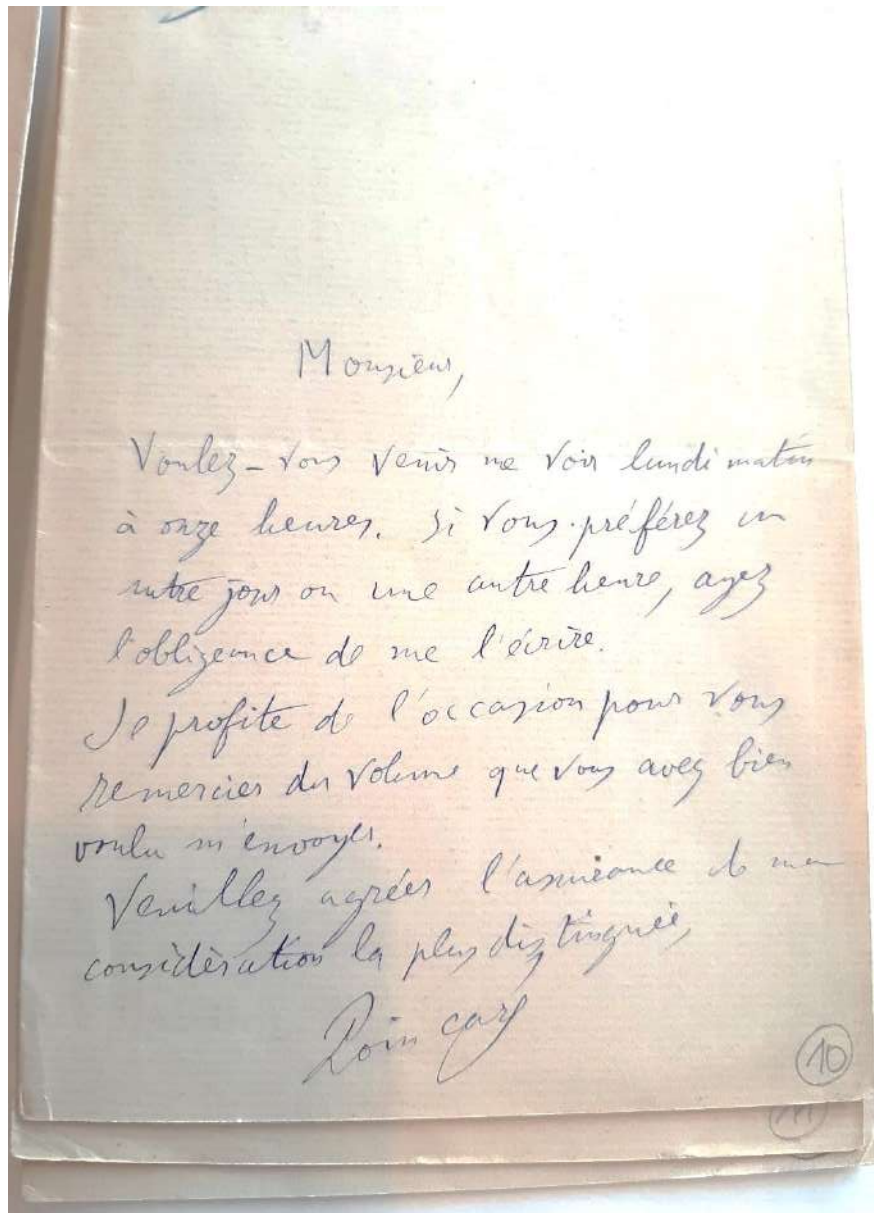 Monsieur,
Voulez-vous venir me voir lundi matin
à onze heures. Si vous préférez un
autre jour ou une autre heure, ayez
l'obligeance de me l'écrire.
Je profite de l'occasion pour vous
remercier du volume que vous avez bien
voulu m'envoyer.
Veuillez agréer l'assurance de ma
considération la plus distinguée,
Poincaré
10
11